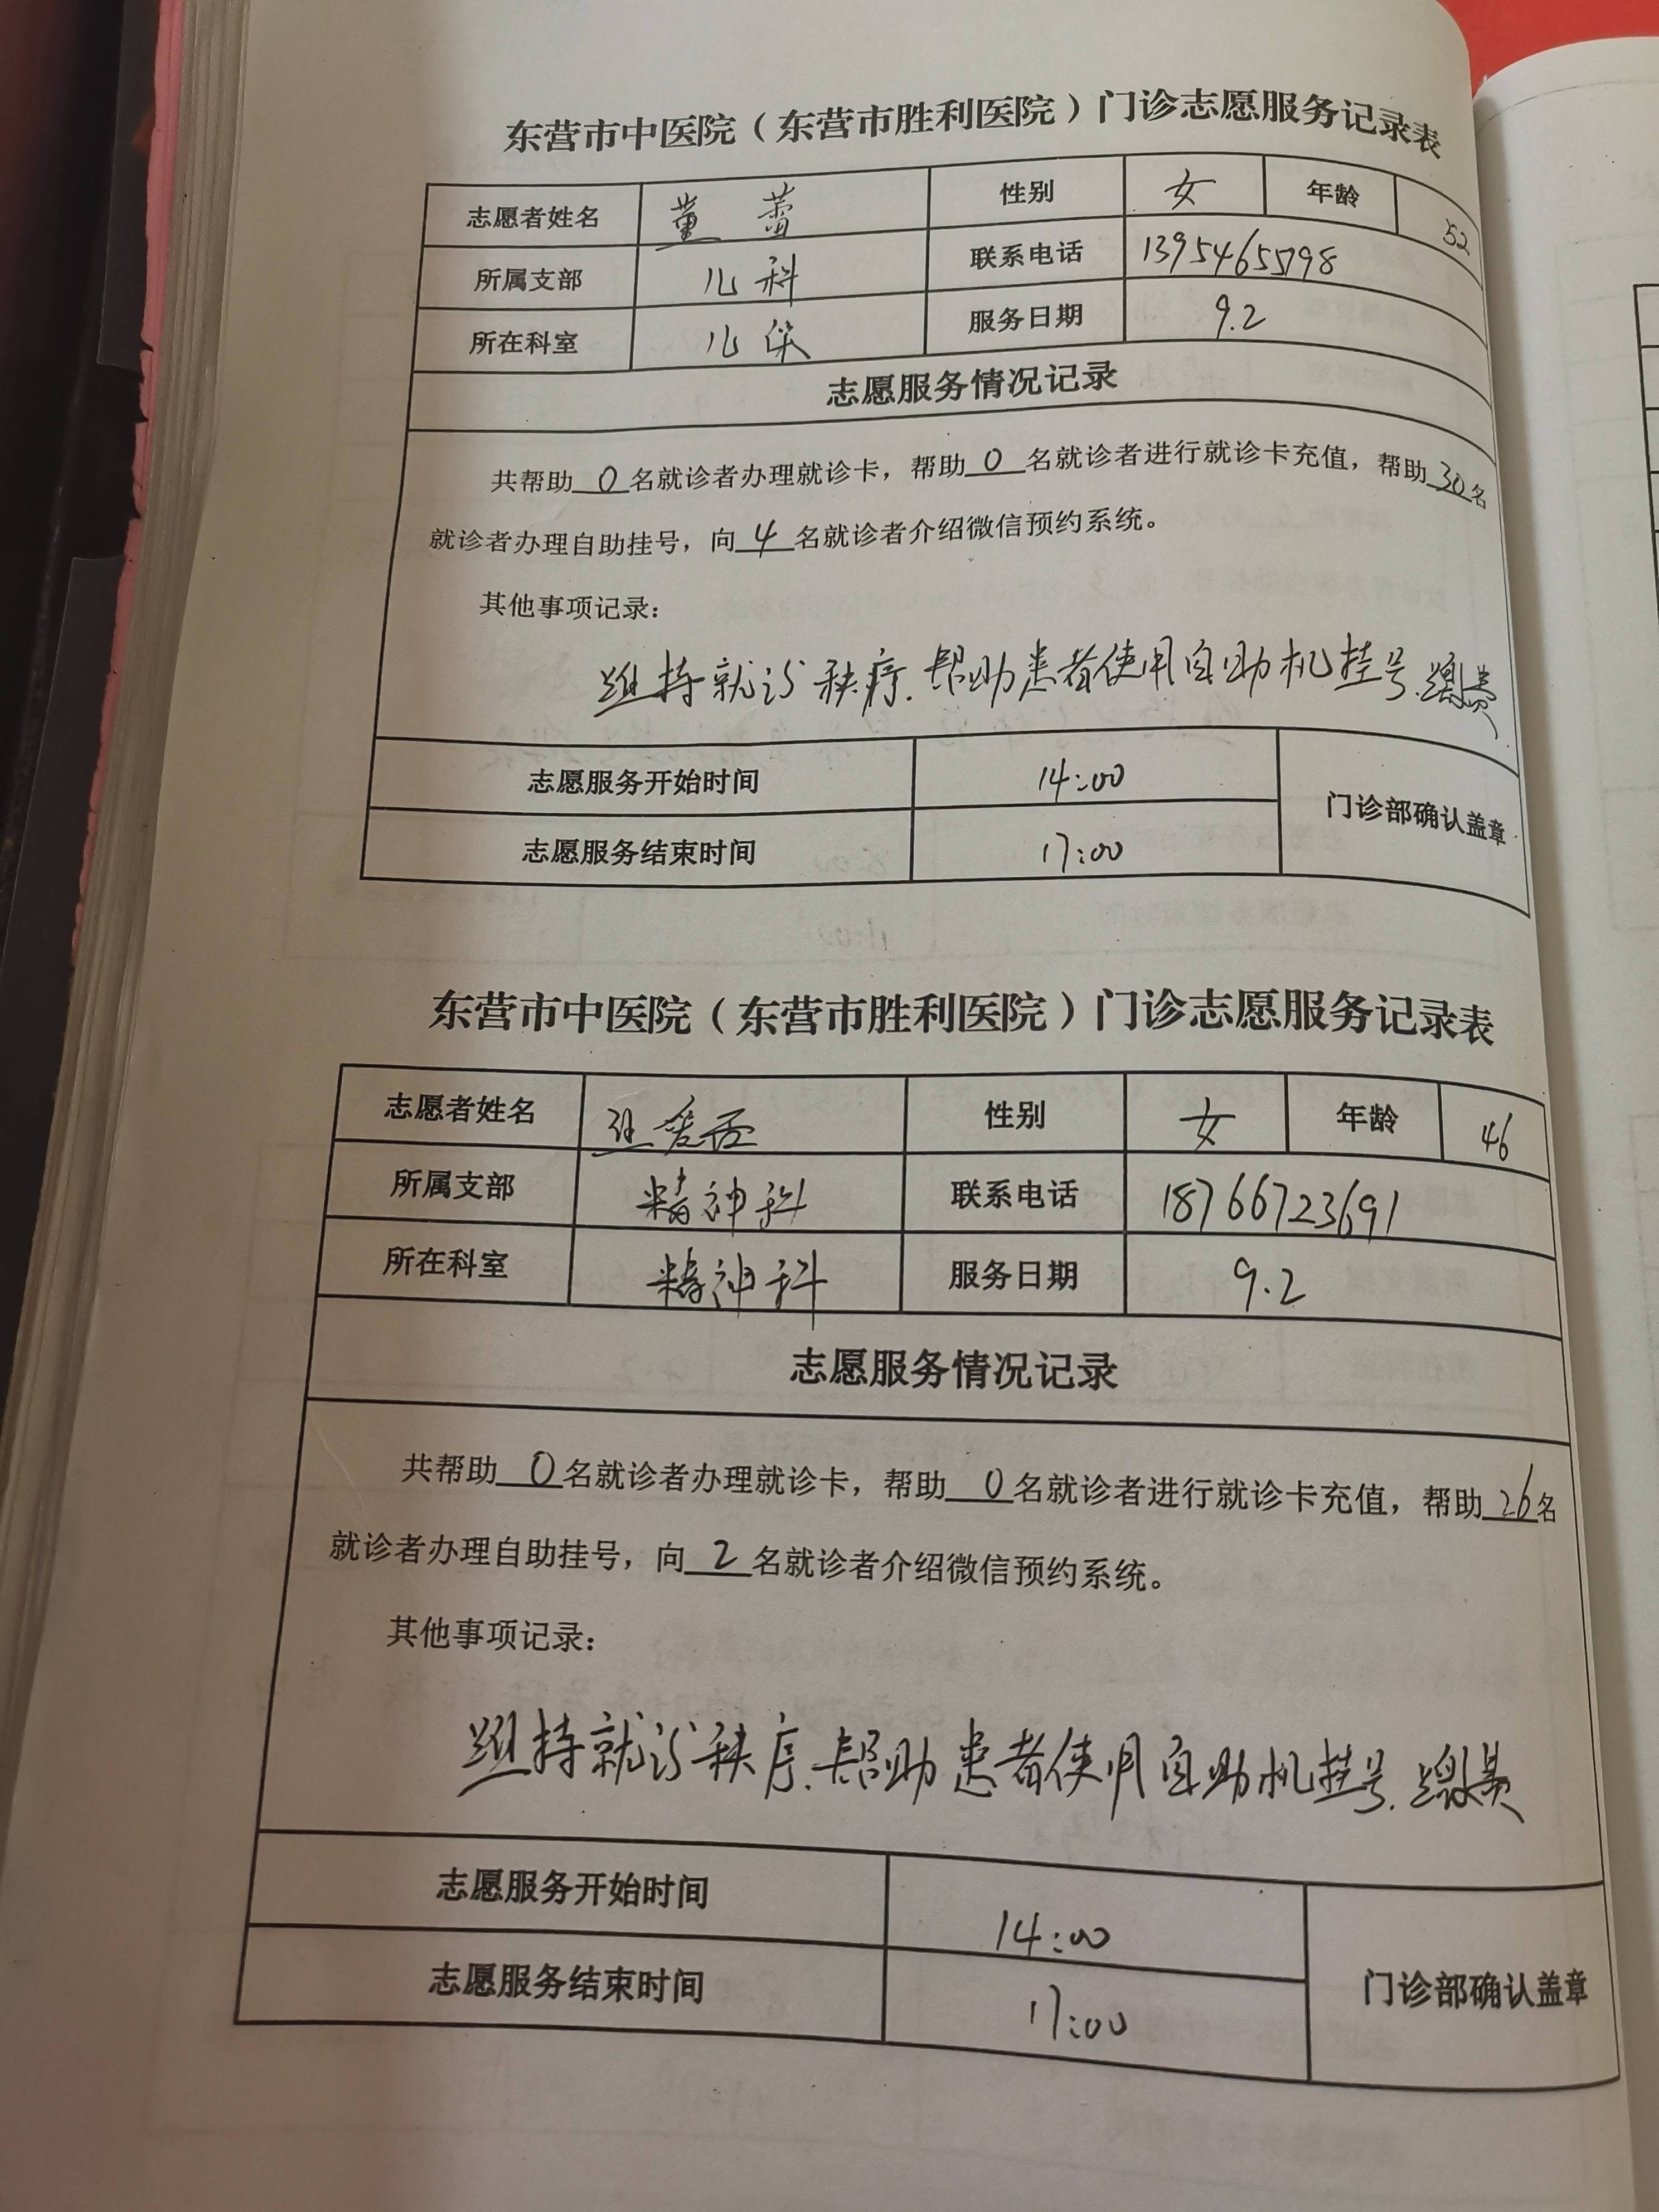 东营市中医院（东营市胜利医院）门诊志愿服务记录表
志愿者姓名 董蕾 性别 女 年龄 52
所属支部 儿科 联系电话 13954655798
所在科室 儿保 服务日期 9.2
志愿服务情况记录
共帮助 0 名就诊者办理就诊卡，帮助 0 名就诊者进行就诊卡充值，帮助 30 名
就诊者办理自助挂号，向 4 名就诊者介绍微信预约系统。
其他事项记录：
维持就诊秩序.帮助患者使用自助机挂号.缴费
志愿服务开始时间 14:00
门诊部确认盖章
志愿服务结束时间 17:00
东营市中医院（东营市胜利医院）门诊志愿服务记录表
志愿者姓名 性别 女 年龄 46
所属支部 精神科 联系电话 18766723691
所在科室 精神科 服务日期 9.2
志愿服务情况记录
共帮助 0 名就诊者办理就诊卡，帮助 0 名就诊者进行就诊卡充值，帮助 26 名
就诊者办理自助挂号，向 2 名就诊者介绍微信预约系统。
其他事项记录：
维持就诊秩序.帮助患者使用自助机挂号.缴费
志愿服务开始时间 14:00
门诊部确认盖章
志愿服务结束时间 17:00